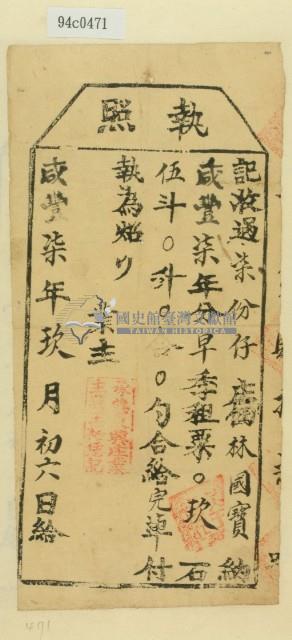 94c0471
執照
記收過柒份仔庄佃林國寶納
咸豐柒年份早季租粟○玖石
伍斗○升○合○勺合給完單付
執為炤り
業主
咸豐柒年玖月初六日給
國史館臺灣文獻館
TAIWAN HISTORICA
471